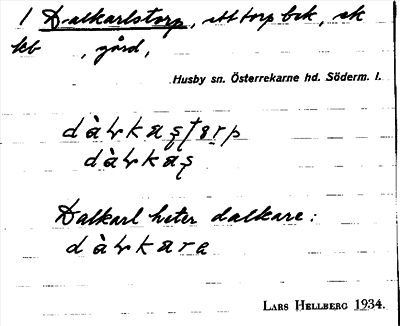 1 Dalkarlstorp, ett torp bok, ek
kb , gård,
Husby sn. Österrekarne hd. Söderm. l.
dàɫkaʂtɐrp
dàɫkaʂ
Dalkarl heter dalkare:
dàɫkara
LARS HELLBERG 1934.